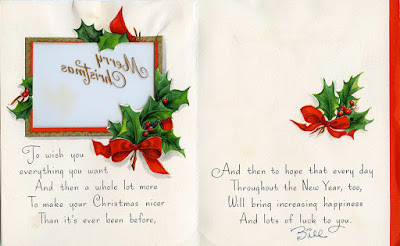 Merry
Christmas
To wish you
everything you want
And then a whole lot more
To make your Christmas nicer
Than it's ever been before,
And then to hope that every day
Throughout the New Year, too,
Will bring increasing happiness
And lots of luck to you.
Bill